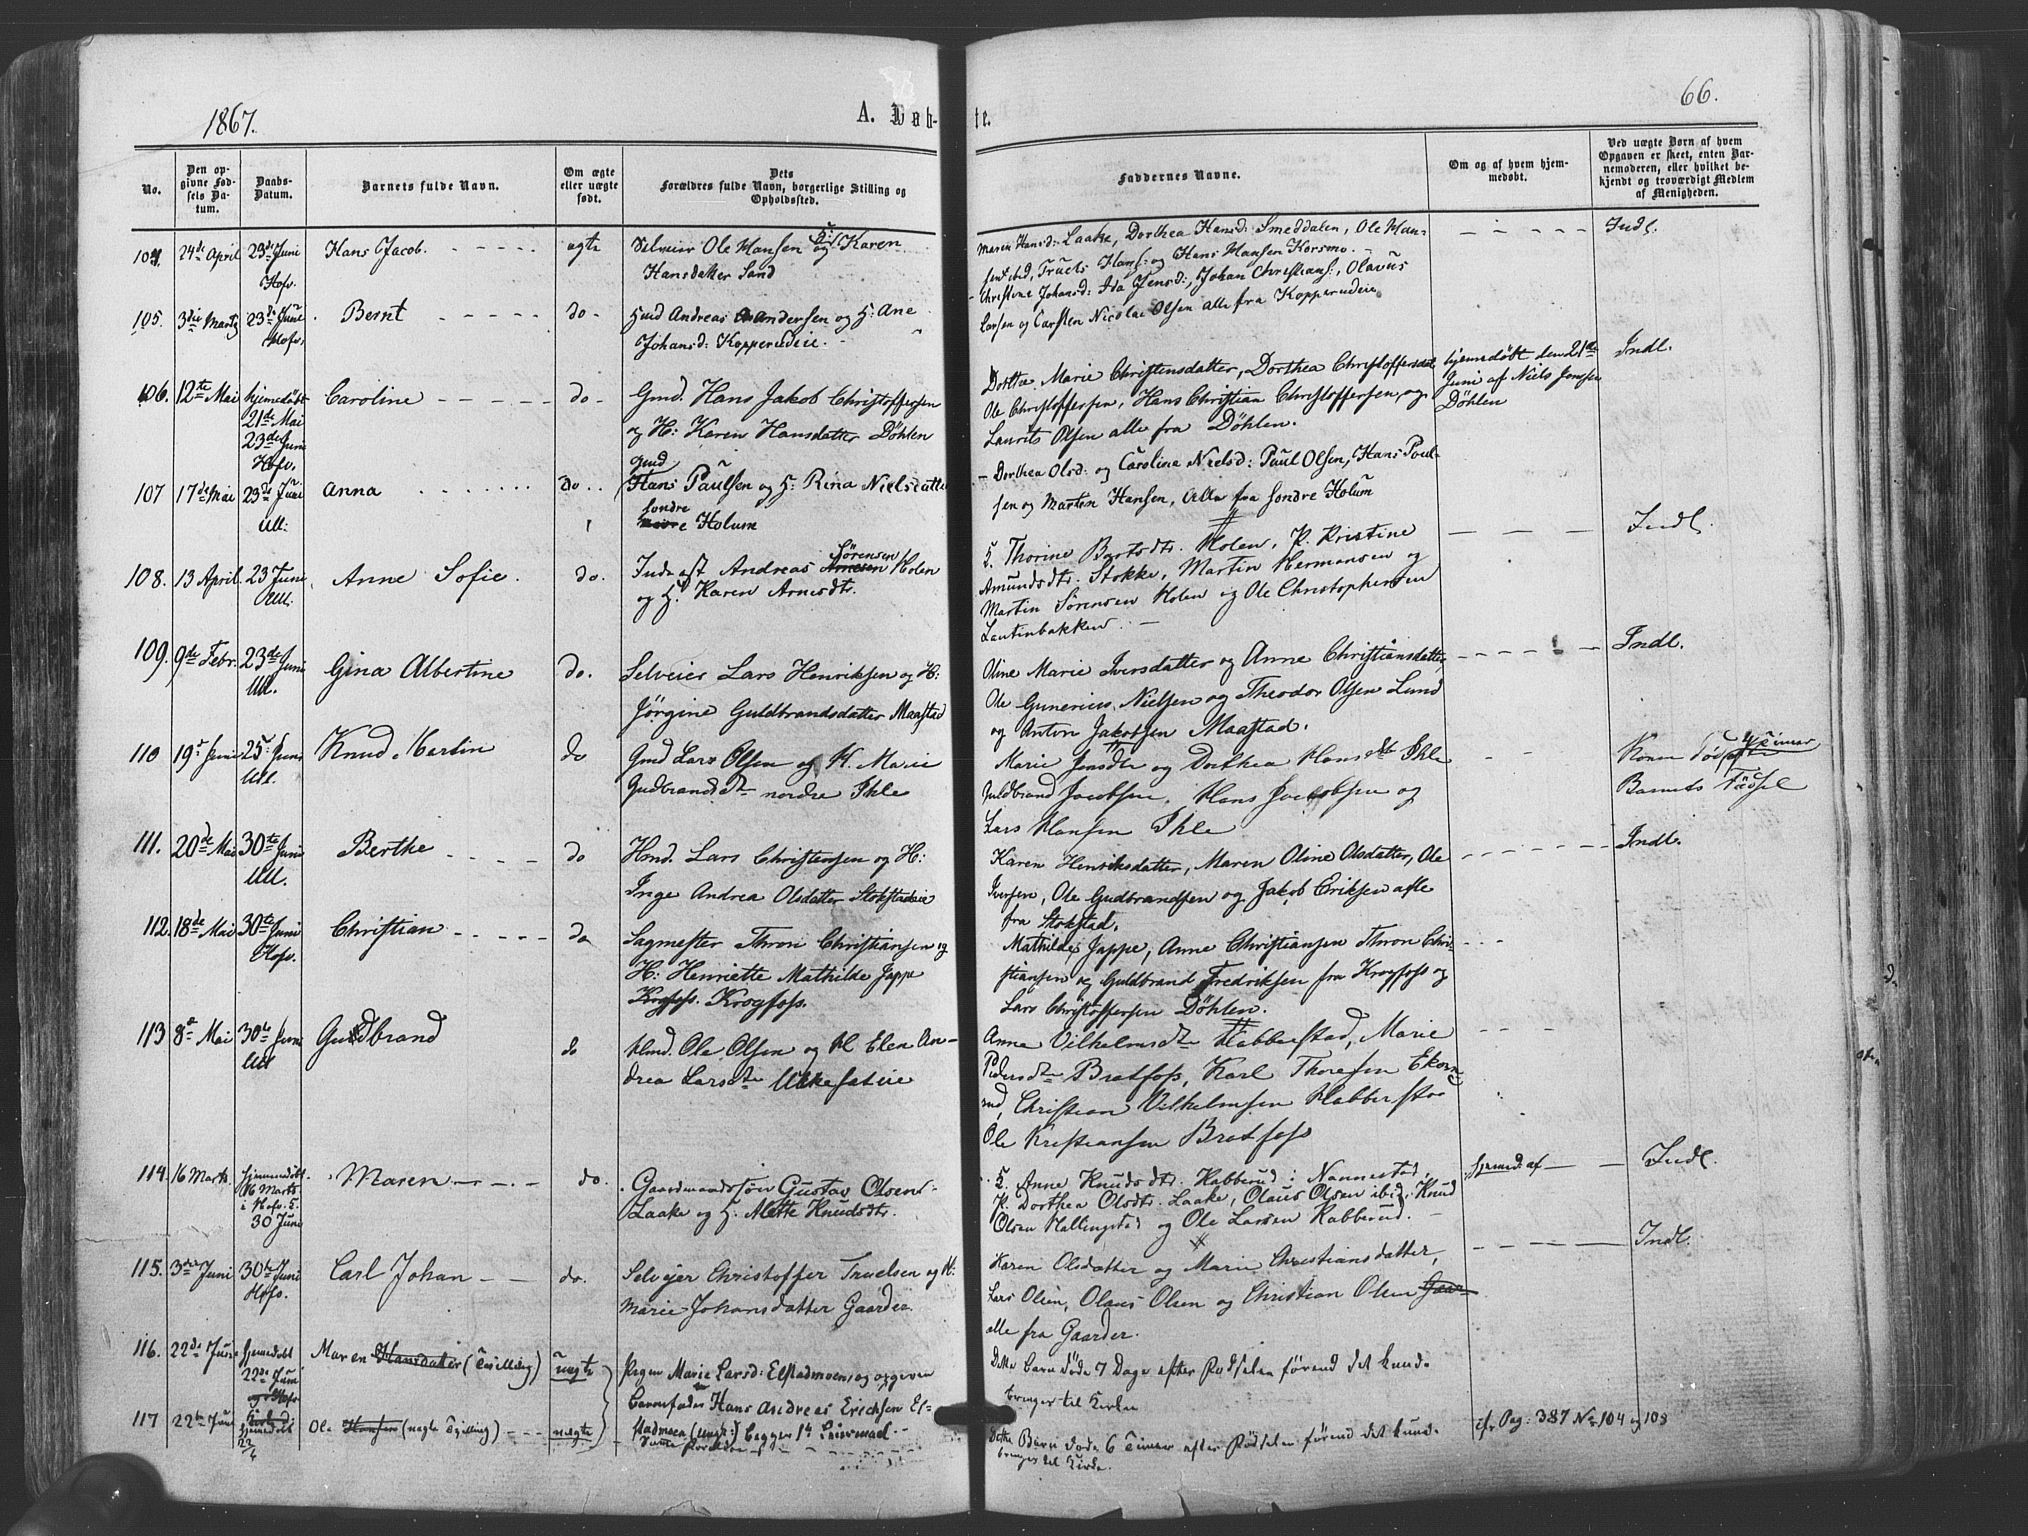 1867.
A. Døb-
te.
66.
No.
Den op-
givne Fød-
sels Da-
tum.
Daabs-
Datum.
Barnets fulde Navn.
Om ægte
eller uægte
født.
Dets
Forældres fulde Navn, borgerlige Stilling og
Opholdssted.
Faddernes Navne.
Om og af hvem hjem-
medøbt.
Ved uægte Børn af hvem
Opgaven er skeet, enten Bar-
nemoderen, eller hvilket be-
kjendt og troværdigt Medlem
af Menigheden.
104. 24de April 23de Juni
Hofv.
Hans Jacob.
ægte
Selveier Ole Hansen og H: Karen
Hansdatter Sand
Maren Hansd: Laake, Dorthea Hansd: Smeddalen, Ole Han-
sen ibid, Truels Hans: og Hans Hansen Korsmo.
Indl.
105. 3die Marts 23de Juni
Hofv.
Bernt
do
Husmd Andreas Andersen og H: Ane
Johansd: Kopperudeie.
Christine Johansd: Ida Jensd:, Johan Christians:, Olavus
Larsen og Carsten Nicolai Olsen alle fra Kopperudeie
106. 12te Mai hjemmedøbt
21de Mai
23de Juni
Hofv.
Caroline
do
Gmd. Hans Jakob Christoffersen
og H: Karen Hansdatter Døhlen
Dorthe Marie Christensdatter, Dorthea Christoffersdat
Ole Christoffersen, Hans Christian Christoffersen, og
Laurits Olsen alle fra Døhlen.
hjemmedøbt den 21de
Juni af Niels Jonsen
Døhlen
Indl.
107 17de Mai 23de Juni
Ull:
Anna
do
Gmd
Hans Paulsen og H: Rina Nielsdatter
søndre
Holum
Dorthea Olsd: og Caroline Nielsd: Paul Olsen, Hans Poul-
sen og Marten Hansen, Alle fra søndre Holum
108. 13 April. 23 Juni
Ull.
Anne Sofie.
do.
Inderst Andreas Sørensen Holen
og H. Karen Arnesdtr.
H. Thorine Bartsdtr. Holen, P. Kristine
Amundsdtr. Stokke, Martin Hermansen og
Martin Sørensen Holen og Ole Christophersen
Lautinbakken.
Indl.
109. 9de Febr. 23de Juni
Ull.
Gina Albertine
do.
Selveier Lars Henriksen og H:
Jørgine Guldbrandsdatter Maastad
Oline Marie Iversdatter og Anne Christiansdatter,
Ole Gunerius Nielsen og Theodor Olsen Lund
og Anton Jakobsen Maastad.
Indl.
110 19de Juni 25de Juni
Ull.
Knud Martin
do
Gmd Lars Olsen og H. Marie
Gudbrandsdtr nordre Ihle
Marie Jensdtr og Dorthea Hansdtr Ihle
Guldbrand Jacobsen, Hans Jacobsen og
Lars Hansen Ihle
Konen død
Barnets Fødsel
111. 20de Mai 30te Juni
Ull.
Berthe
do
Hmd. Lars Christensen og H:
Inge Andrea Olsdatter Stokstadeie
Karen Henriksdatter, Maren Oline Olsdatter, Ole
Iversen, Ole Gudbrandsen og Jakob Eriksen alle
fra Stokstad.
Indl.
112. 18de Mai 30te Juni
Hofv.
Christian
do
Sagmester Thron Christiansen og
H: Henriette Mathilde Jappe
Krogfoss.
Mathilde Jappe, Anne Christiansen Thron Chri-
stiansen og Guldbrand Fredriksen fra Krogfoss og
Lars Christoffersen Døhlen.
113 8de Mai 30te Juni
Ull
Gudbrand
do
Hmd. Ole Olsen og H Elen An-
drea Larsdtr
Anne Vilhelmsdtr Habberstad, Marie
Pedersdtr Bratfoss, Karl Thoresen Ekorn-
rud, Christian Vilhelmsen Habberstad
Ole Kristiansen Bratfoss
114. 16 Marts. hjemmedøbt
16 Marts
i Hofv. K.
30 Juni
Maren
do.
Gaardmandssøn Gustav Olsen
Laake og H. Alette Knudsdtr.
H. Anne Knudsdtr. Habberud i Nannestad,
P. Dorthea Olsdtr. Laake, Olaus Olsen ibid. Knud
Olsen Hallingstad og Ole Larsen Rabberud.
hjemmed: af
Indl.
115. 3die Juni 30te Juni
Hofv.
Carl Johan
do.
Selvejer Christoffer Truelsen og H:
Marie Johansdatter Gaarder
Karen Olsdatter og Marie Christiansdatter,
Lars Olsen, Olaus Olsen og Christian Olsen
alle fra Gaarder.
Indl.
116. 22de Juni hjemmedøbt
22de Juni
Maren Hansdatter (Tvilling)
uægte
Pigen Marie Larsd: Elstadmoen, og opgiven
Barnefader Hans Andreas Erichsen El-
stadmoen (ungk:) begges 1te Leiermaal
Dette Barn døde 7 Dage efter Fødselen førend det kunde
bringes til Kirken
117 22de Juni
hjemmedøbt
Ole Hansen (uægte Tvilling)
uægte
Samme Forældre
Dette Barn døde 6 Timer efter Fødselen førend det kunde
bringes til Kirke.
cfr Pag: 387 No 104 og 103